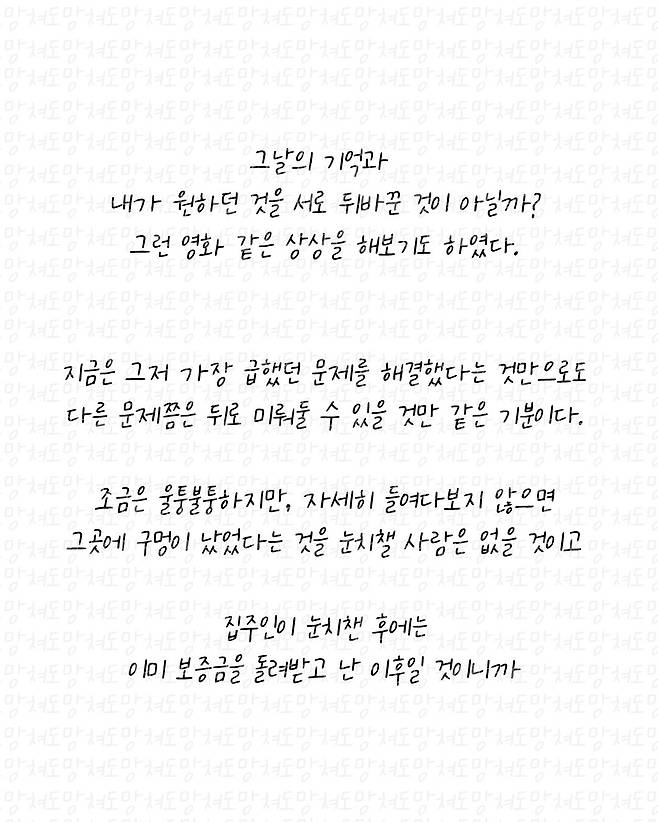 그날의 기억과
내가 원하던 것을 서로 뒤바꾼 것이 아닐까?
그런 영화 같은 상상을 해보기도 하였다.
지금은 그저 가장 급했던 문제를 해결했다는 것만으로도
다른 문제쯤은 뒤로 미뤄둘 수 있을 것만 같은 기분이다.
조금은 울퉁불퉁하지만, 자세히 들여다보지 않으면
그곳에 구멍이 났었다는 것을 눈치챌 사람은 없을 것이고
집주인이 눈치챈 후에는
이미 보증금을 돌려받고 난 이후일 것이니까